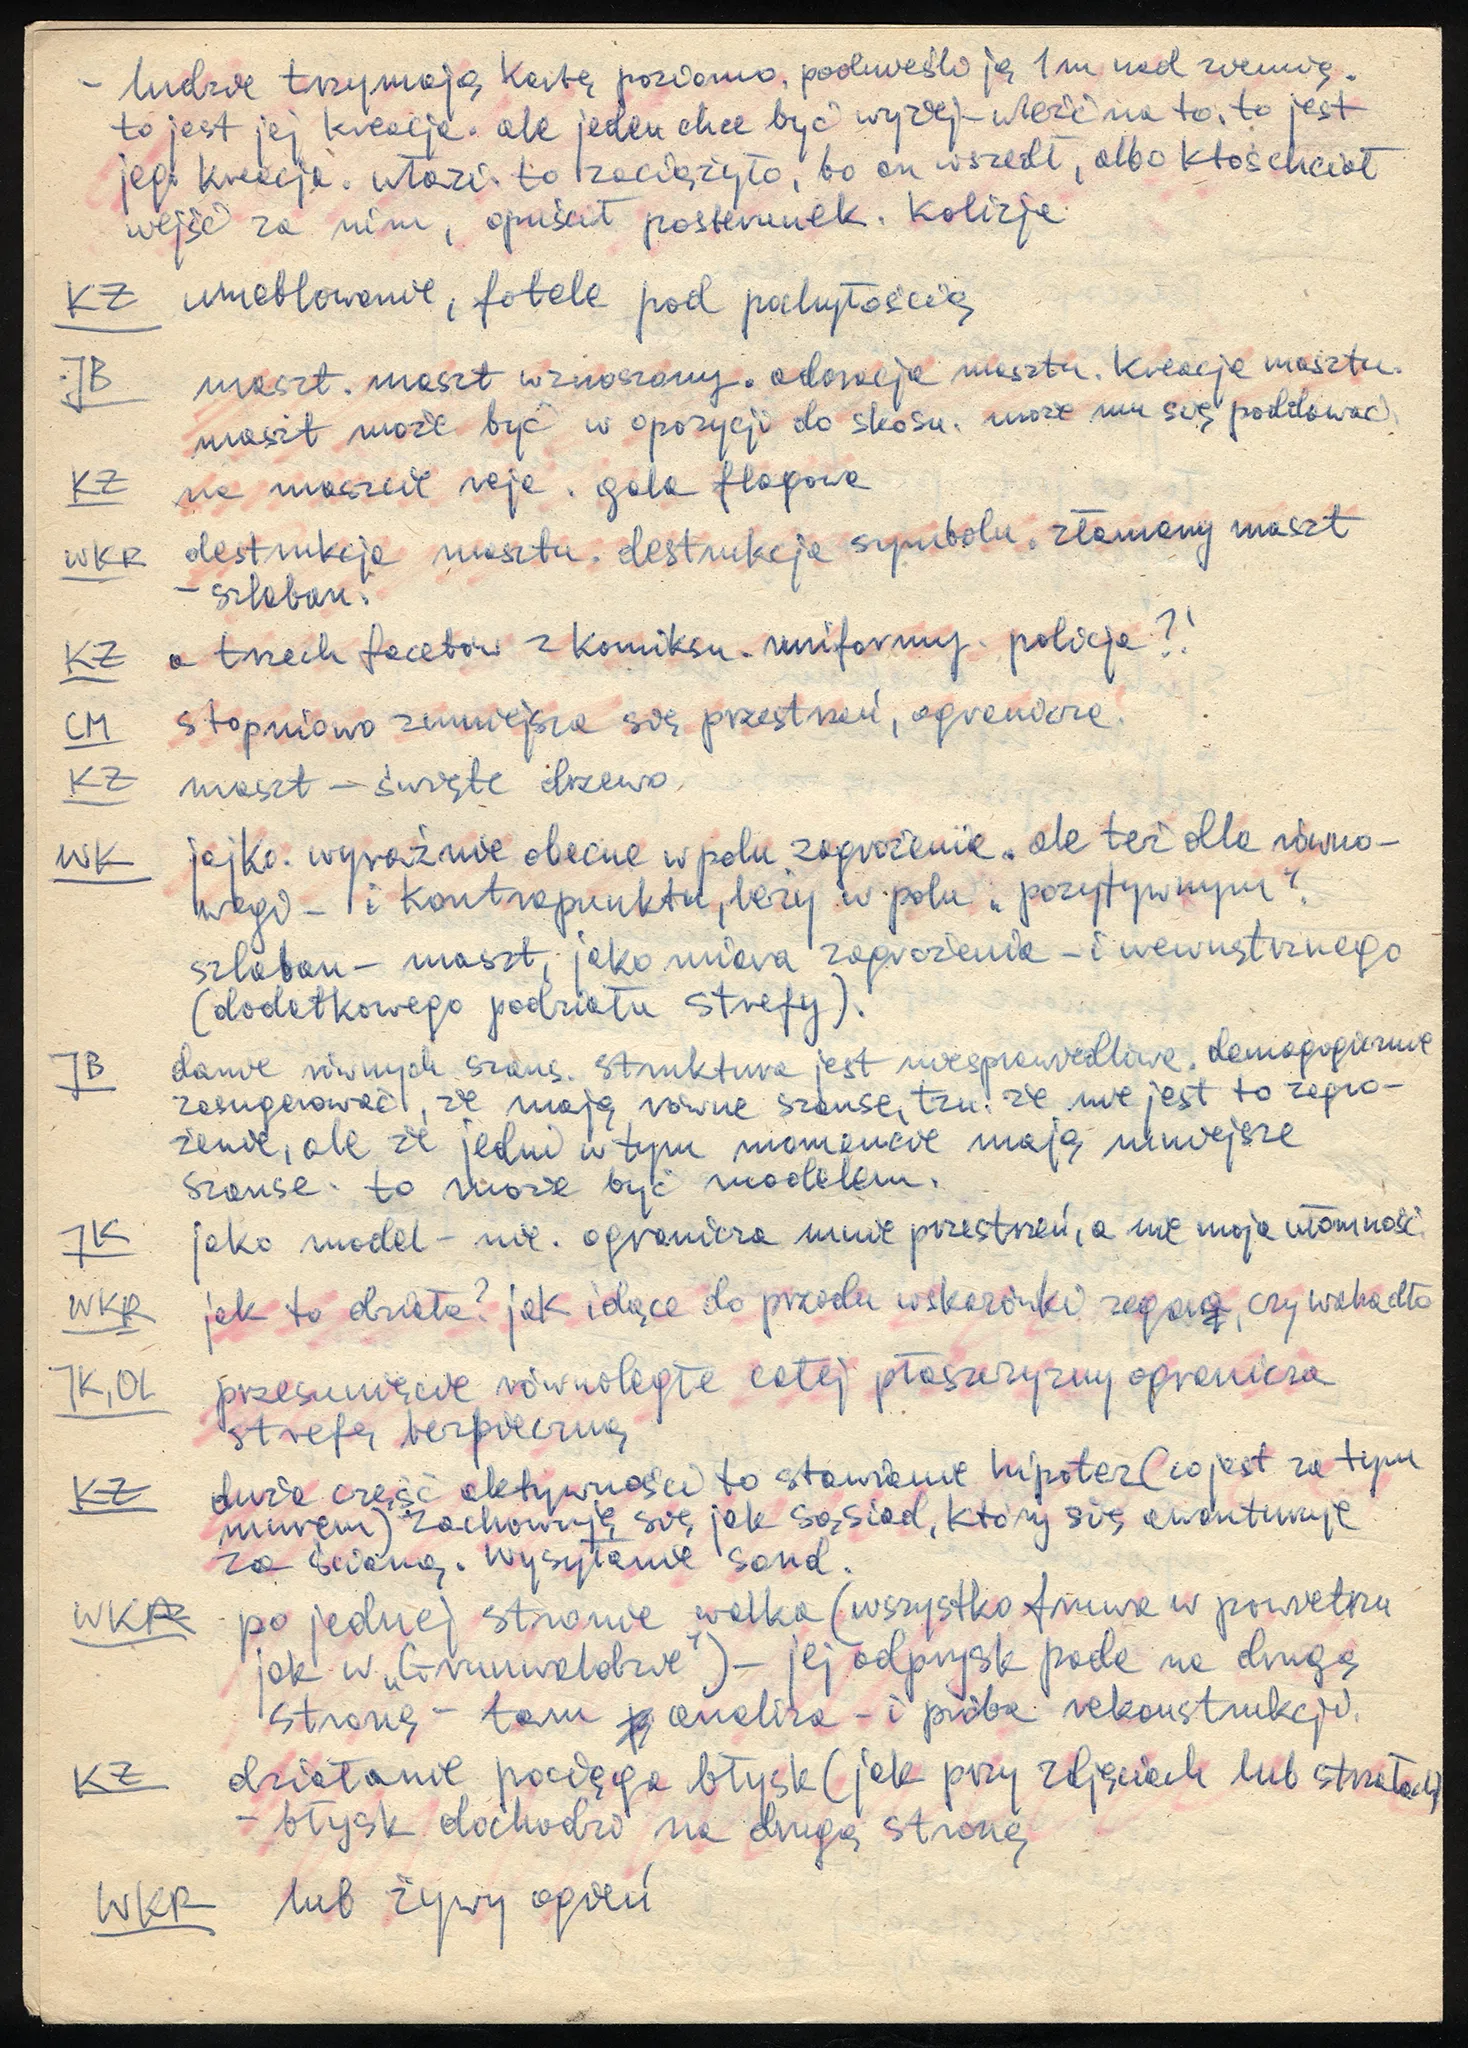 - ludzie trzymają kartę poziomo, podnieśli ją 1 m nad ziemię.
to jest jej kreacja. ale jeden chce być wyżej - wleźć na to. to jest
jego kreacja. włazi. to zaciążyło, bo on wszedł, albo ktoś chciał
wejść za nim, opuścił posterunek. Kolizja
KZ umeblowanie, fotele pod pochyłością
JB maszt. maszt wznoszony. adoracja masztu. Kreacja masztu.
maszt może być w opozycji do skosu. może mu się poddawać.
KZ na maszcie reja. gala flagowa
WKR destrukcja masztu. destrukcja symbolu. złamany maszt
- szlaban.
KZ a trzech facetów z komiksu. uniformy. policja?!
CM stopniowo zmniejsza się przestrzeń, ogranicza.
KZ maszt - święte drzewo
WK jajko. wyraźnie obecne w polu zagrożenia. ale też dla równo-
wagi - i kontrapunktu, leży w polu "pozytywnym".
szlaban - maszt, jako miara zagrożenia - i wewnętrznego
(dodatkowego podziału strefy).
JB danie równych szans. struktura jest niesprawiedliwa. demagogicznie
zasugerować, że mają równe szanse, tzn. że nie jest to zagro-
żenie, ale że jedni w tym momencie mają mniejsze
szanse. to może być modelem.
JK jako model - nie. ogranicza mnie przestrzeń, a nie moja ułomność.
WKR jak to działa? jak idące do przodu wskazówki zegara, czy wahadło
JK, OL przesunięcie równoległe całej płaszczyzny ogranicza
strefę bezpieczną
KZ duża część aktywności to stawianie hipotez (co jest za tym
murem) zachowuję się jak sąsiad, który się awanturuje
za ścianą. wysyłanie sond.
WKR po jednej stronie walka (wszystko fruwa w powietrzu
jak w "Grunwaldzie") - jej odprysk pada na drugą
stronę - tam analiza - i próba rekonstrukcji.
KZ działanie pociąga błysk (jak przy zdjęciach lub strzałach)
- błysk dochodzi na drugą stronę
WKR lub żywy ogień